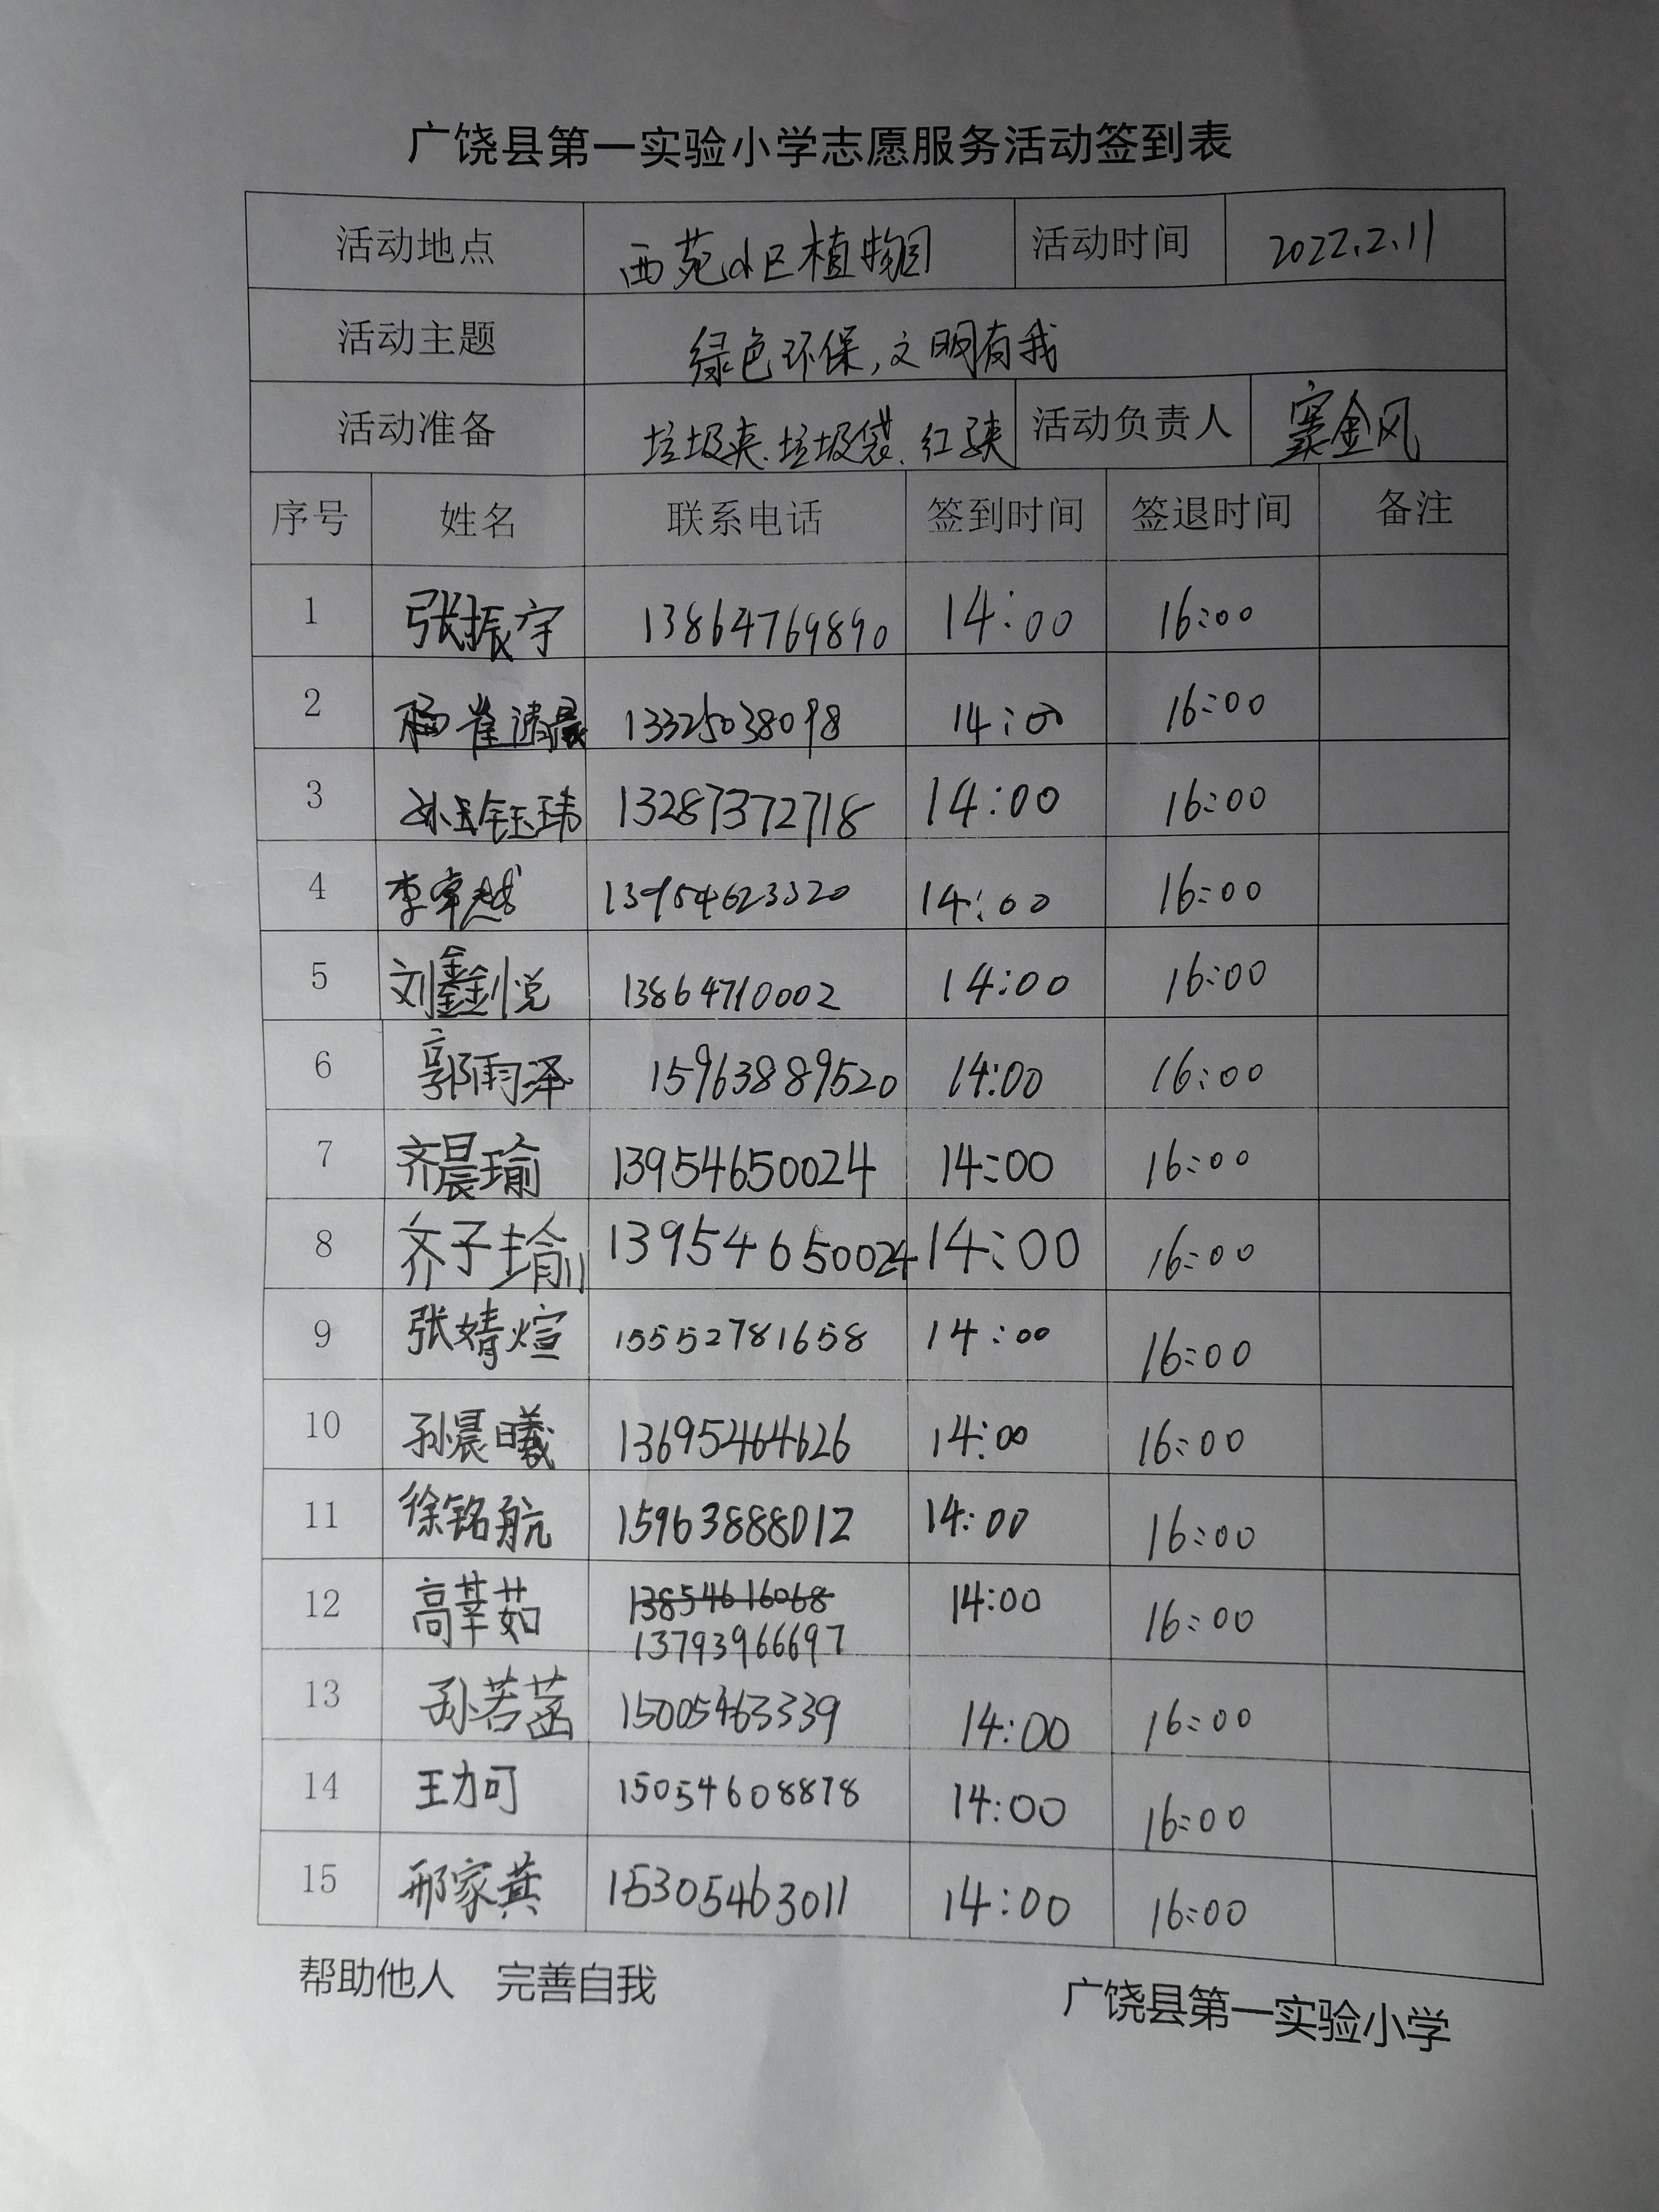 广饶县第一实验小学志愿服务活动签到表
活动地点 西苑小区植物园 活动时间 2022.2.11
活动主题 绿色环保,文明有我
活动准备 垃圾夹.垃圾袋.红 活动负责人 窦金风
序号 姓名 联系电话 签到时间 签退时间 备注
1 张振宇 13864769890 14:00 16:00
2 崔清晨 13325038098 14:00 16:00
3 孙钰玮 13287372718 14:00 16:00
4 李卓越 13954623320 14:00 16:00
5 刘鑫悦 13864710002 14:00 16:00
6 郭雨泽 15963889520 14:00 16:00
7 齐晨瑜 13954650024 14:00 16:00
8 齐子瑜 13954650024 14:00 16:00
9 张婧煊 15552781658 14:00 16:00
10 孙晨曦 13695464626 14:00 16:00
11 徐铭航 15963888012 14:00 16:00
12 高莘茹 13854616068 14:00 16:00
13793966697
13 孙若菡 15005463339 14:00 16:00
14 王力可 15054608878 14:00 16:00
15 邢家萁 15305463011 14:00 16:00
帮助他人 完善自我
广饶县第一实验小学